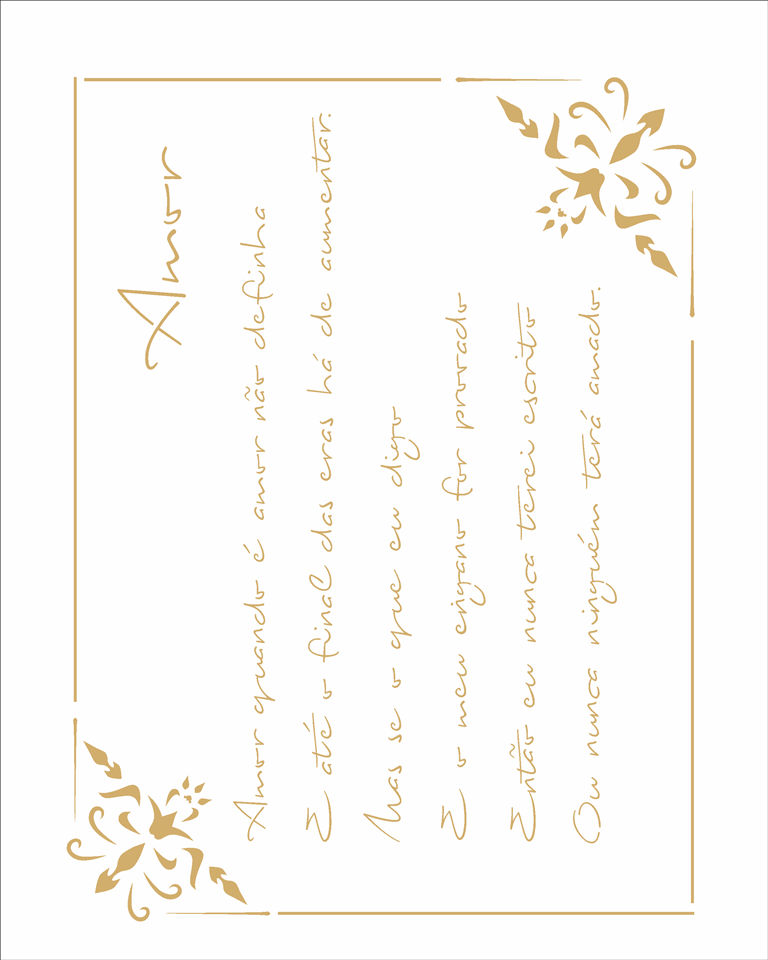 Amor
Amor quando é amor não definha
E até o final das eras há de aumentar.
Mas se o que eu digo
E o meu engano for provado
Então eu nunca terei escrito
Ou nunca ninguém terá amado.